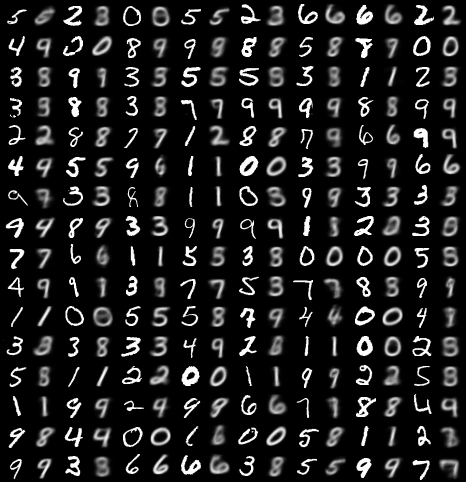 5 2 3 0 0 5 5 2 3 6 6 6 6 2 2
4 9 0 0 8 9 9 9 8 8 5 8 8 9 0 0
3 8 9 9 3 3 5 5 5 5 3 3 1 1 2 3
3 3 8 8 3 8 7 9 9 9 9 9 8 8 9 9
2 2 8 8 7 7 1 2 8 8 7 9 6 6 9 9
4 9 5 5 9 6 1 1 0 0 3 3 9 9 6 6
9 9 3 3 8 8 1 1 0 3 9 9 3 3 3 3
9 4 8 9 3 3 9 9 9 9 1 8 2 3 5
7 7 6 6 1 1 5 5 3 8 0 0 0 0 5 5
4 9 9 1 3 8 7 7 5 3 7 7 8 8 9 9
1 1 0 0 5 5 5 8 7 9 4 4 0 0 4 8
3 3 3 8 3 3 4 9 2 8 1 1 0 0 2 8
5 8 1 1 2 2 0 0 1 1 9 9 2 2 5 8
1 1 9 9 2 4 9 9 6 6 7 1 8 8 4 9
9 8 4 4 0 0 1 6 0 0 5 8 1 1 2 3
9 9 3 3 6 6 6 6 3 8 5 5 9 9 7 7